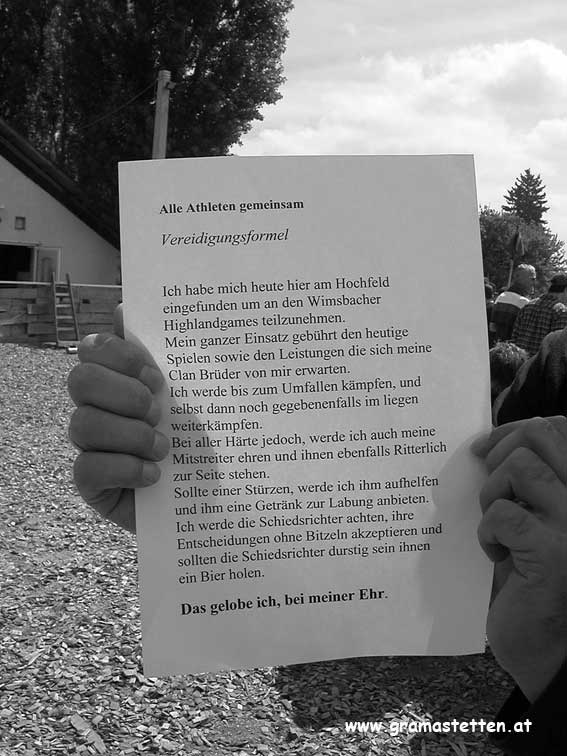 Alle Athleten gemeinsam
Vereidigungsformel
Ich habe mich heute hier am Hochfeld
eingefunden um an den Wimsbacher
Highlandgames teilzunehmen.
Mein ganzer Einsatz gebührt den heutige
Spielen sowie den Leistungen die sich meine
Clan Brüder von mir erwarten.
Ich werde bis zum Umfallen kämpfen, und
selbst dann noch gegebenenfalls im liegen
weiterkämpfen.
Bei aller Härte jedoch, werde ich auch meine
Mitstreiter ehren und ihnen ebenfalls Ritterlich
zur Seite stehen.
Sollte einer Stürzen, werde ich ihm aufhelfen
und ihm eine Getränk zur Labung anbieten.
Ich werde die Schiedsrichter achten, ihre
Entscheidungen ohne Bitzeln akzeptieren und
sollten die Schiedsrichter durstig sein ihnen
ein Bier holen.
Das gelobe ich, bei meiner Ehr.
www.gramastetten.at